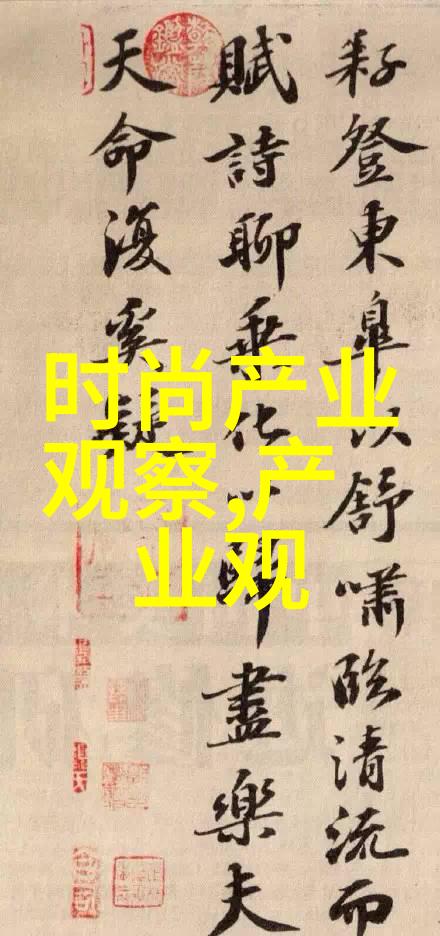 耔登東皋以舒嘯臨清流而
賦詩聊乘化以歸盡樂夫
天命復奚疑
时尚产业
观察,产
业观